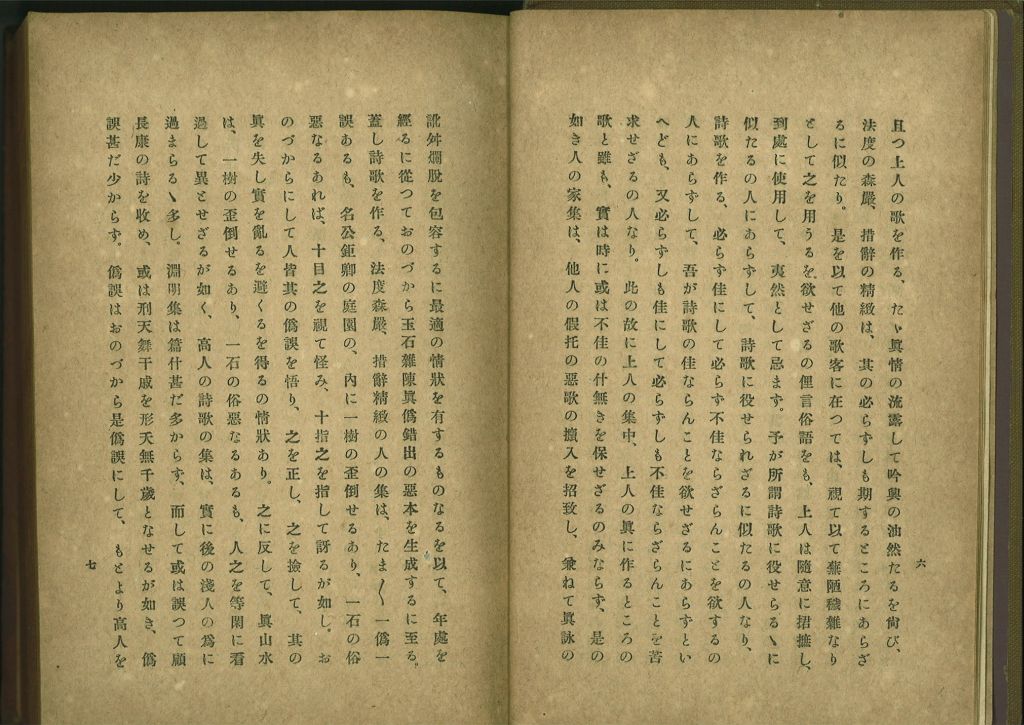 且つ上人の歌を作る、たゞ眞情の流露して吟興の油然たるを尙び、
法度の森嚴、措辭の精緻は、其の必らずしも期するところにあらざ
るに似たり。是を以て他の歌客に在つては、視て以て蕪陋穢雜なり
として之を用うるを欲せざるの俚言俗語をも、上人は隨意に捃摭し、
到處に使用して、夷然として忌まず。予が所謂詩歌に役せらるゝに
似たるの人にあらずして、詩歌に役せられざるに似たるの人なり、
詩歌を作る、必らず佳にして必らず不佳ならざらんことを欲するの
人にあらずして、吾が詩歌の佳ならんことを欲せざるにあらずとい
へども、又必らずしも佳にして必らずしも不佳ならざらんことを苦
求せざるの人なり。此の故に上人の集中、上人の眞に作るところの
歌と雖も、實は時に或は不佳の什無きを保せざるのみならず、是の
如き人の家集は、他人の假托の惡歌の攙入を招致し、兼ねて眞詠の
六
訛舛爛脫を包容するに最適の情狀を有するものなるを以て、年處を
經るに從つておのづから玉石雜陳眞僞錯出の惡本を生成するに至る。
蓋し詩歌を作る、法度森嚴、措辭精緻の人の集は、たま〱一僞一
誤あるも、名公鉅卿の庭園の、內に一樹の歪倒せるあり、一石の俗
惡なるあれば、十目之を視て怪み、十指之を指して訝るが如し。お
のづからにして人皆其の僞誤を悟り、之を正し、之を撿して、其の
眞を失し實を亂るを避くるを得るの情狀あり。之に反して、眞山水
は、一樹の歪倒せるあり、一石の俗惡なるあるも、人之を等閑に看
過して異とせざるが如く、高人の詩歌の集は、實に後の淺人の爲に
過まらるゝ多し。淵明集は篇什甚だ多からず、而して或は誤つて顧
長康の詩を收め、或は刑天舞干戚を形夭無千歲となせるが如き、僞
誤甚だ少からず。僞誤はおのづから是僞誤にして、もとより高人を
七